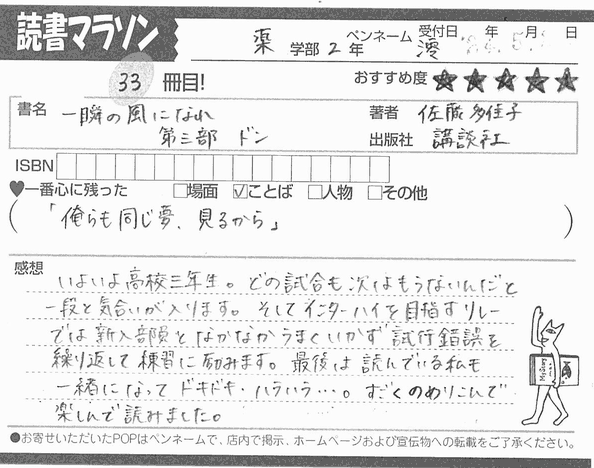 読書マラソン
薬 学部 2 年 ペンネーム 澪 受付日 年 月 日
33 冊目! おすすめ度 ★★★★★
書名 一瞬の風になれ 著者 佐藤多佳子
第三部 ドン 出版社 講談社
ISBN
♥一番心に残った □場面 ☑ことば □人物 □その他
(「俺らも同じ夢、見るから」)
感想
いよいよ高校三年生。どの試合も次はもうないんだと
一段と気合いが入ります。そしてインターハイを目指すリレー
では新入部員となかなかうまくいかず試行錯誤を
繰り返して練習に励みます。最後は読んでいる私も
一緒になってドキドキ・ハラハラ…。すごくのめりこんで
楽しんで読みました。
Mystery
●お寄せいただいたPOPはペンネームで、店内で掲示、ホームページおよび宣伝物への転載をご了承ください。